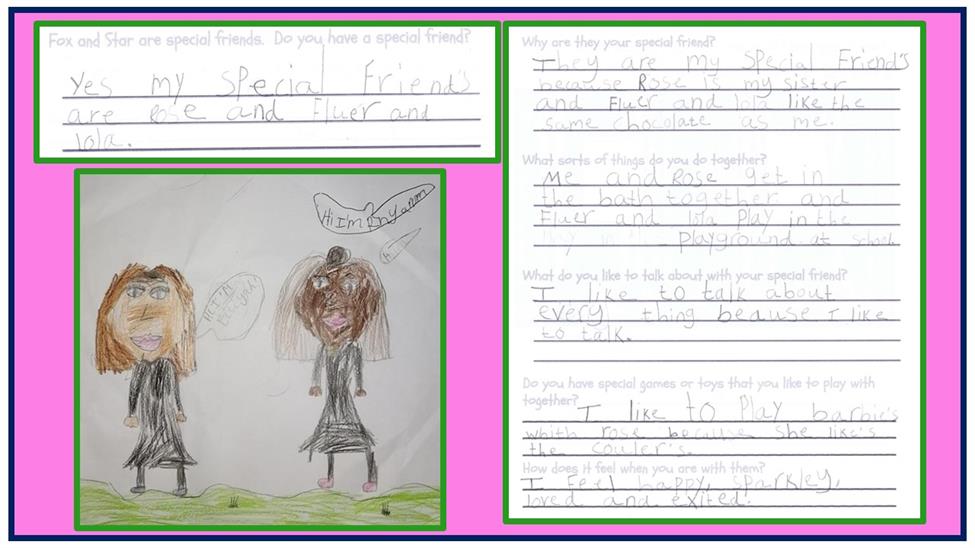 Fox and Star are special friends. Do you have a special friend?
Yes my special Friend's
are Rose and Fluer and
lola.
Hi I'm
Why are they your special friend?
They are my special Friend's
because Rose is my sister
and Fluer and lola like the
same chocolate as me.
What sorts of things do you do together?
Me and Rose get in
the bath together and
Fluer and lola Play in the
playground at school
What do you like to talk about with your special friend?
I like to talk about
every thing beause I like
to talk.
Do you have special games or toys that you like to play with
together?
I like to Play barbie's
whith rose because she like's
the couler's.
How does it feel when you are with them?
I Feel happy, sparkley,
loved and exited.